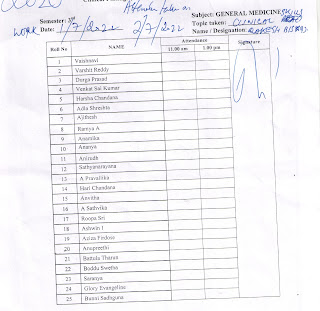 Attender taken on
Semester:
Subject: GENERAL MEDICINE SKILLS
WORK Date: 1/7/2022 2/7/2022
Topic taken: CLINICAL
Name / Designation: RAKESH BISWAS
Roll No NAME Attendance Signature
11.00 am 1.00 pm
1 Vaishnavi
2 Varshit Reddy
3 Durga Prasad
4 Venkat Sai Kumar
5 Harsha Chandana
6 Adla Shreshta
7 Ajithesh
8 Ramya A
9 Anamika
10 Ananya
11 Anirudh
12 Sathyanarayana
13 A Pravallika
14 Hari Chandana
15 Anvitha
16 A Sathvika
17 Roopa Sri
18 Ashwin I
19 Aziza Firdous
20 Anupreethi
21 Battula Tharun
22 Boddu Swetha
23 Saranya
24 Glory Evangeline
25 Bunni Sadhguna